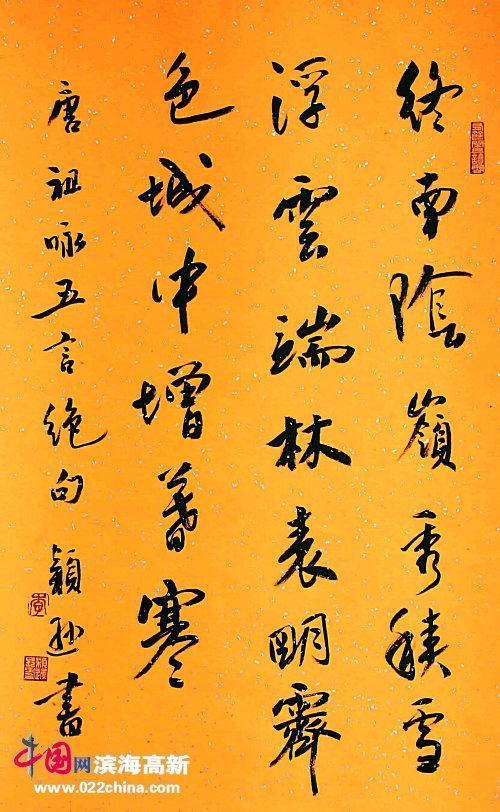 終南陰嶺秀積雪
浮雲端林表明霽
色城中增暮寒
唐祖咏五言絶句 穎 書
中国网 滨海高新
www.022china.com